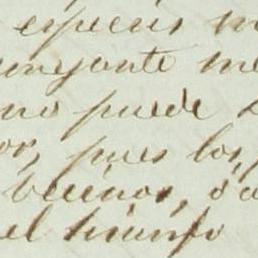 especies m
no puede
or, pues los
buenos, o a
el triunfo